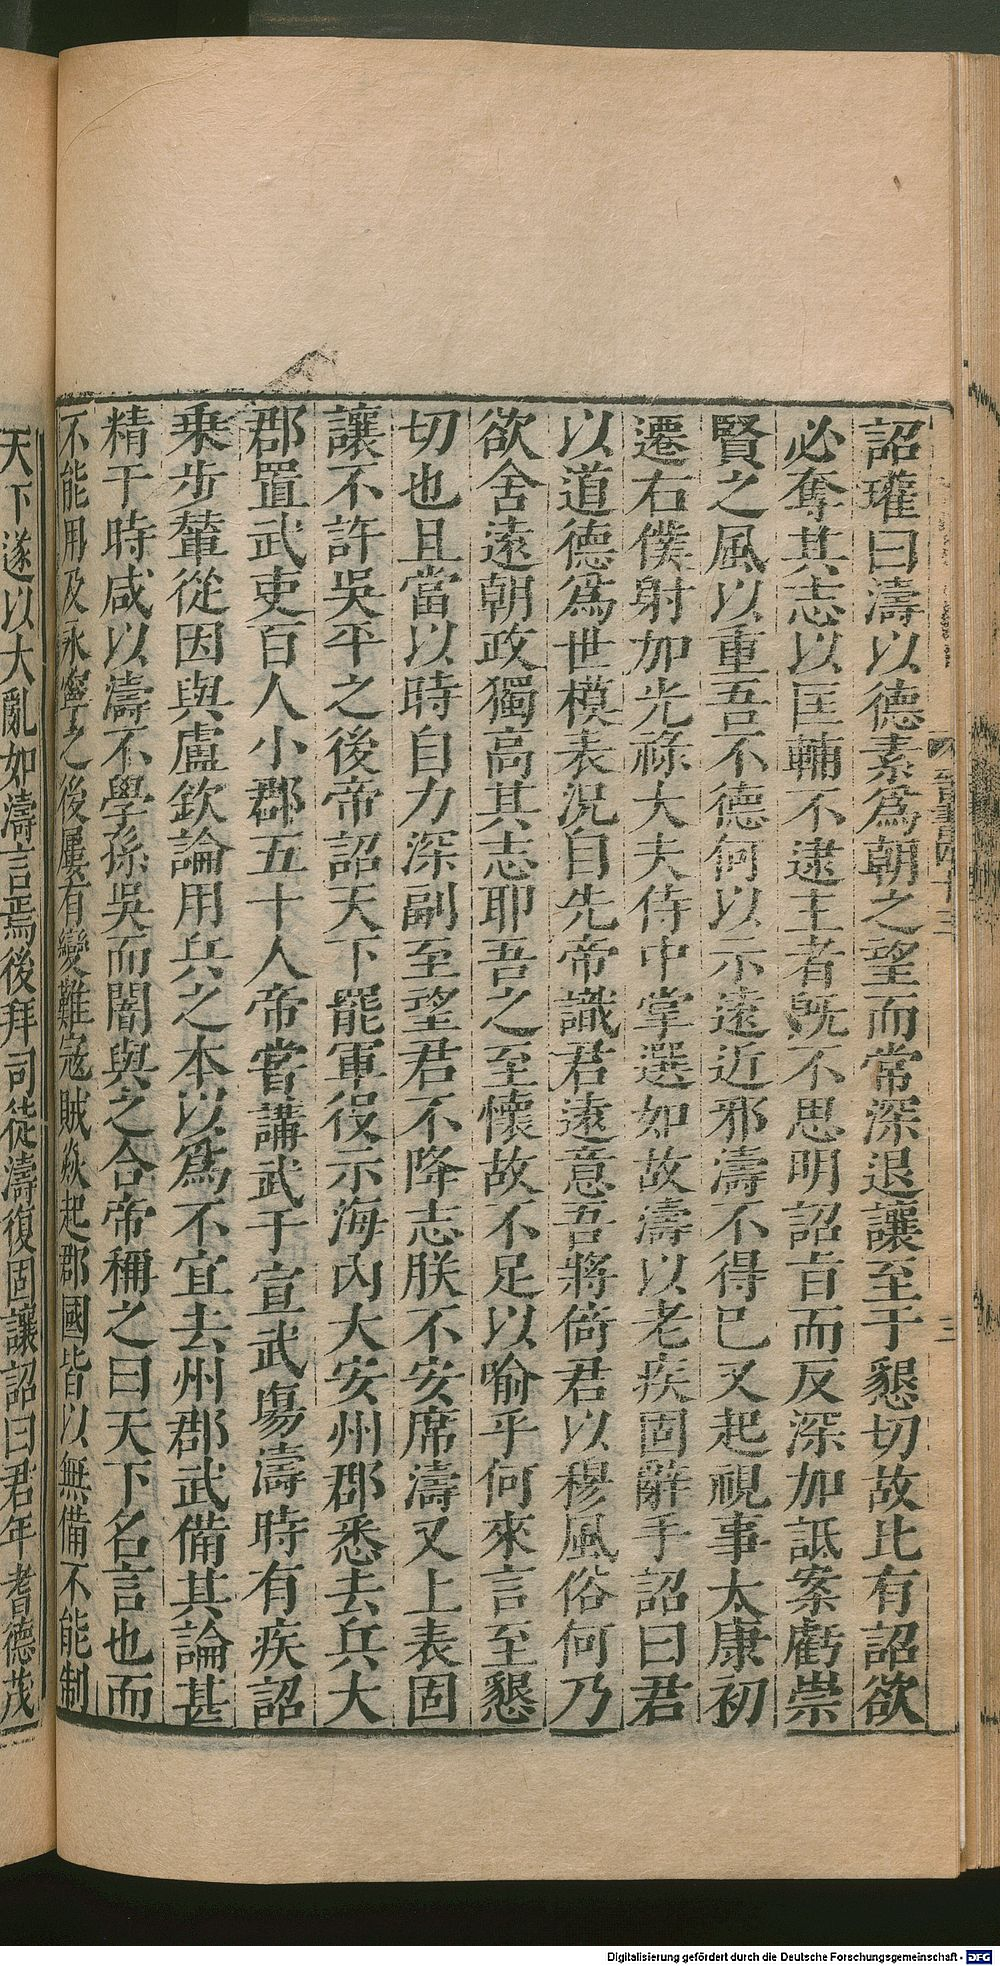 詔瓘曰濤以德素爲朝之望而常深退讓至于懇切故比有詔欲
必奪其志以匡輔不逮主者旣不思明詔旨而反深加詆案虧崇
賢之風以重吾不德何以示遠近邪濤不得已又起視事太康初
遷右僕射加光祿大夫侍中掌選如故濤以老疾固辭手詔曰君
以道德爲世模表況自先帝識君遠意吾將倚君以穆風俗何乃
欲舍遠朝政獨高其志耶吾之至懷故不足以喻乎何來言至懇
切也且當以時自力深副至望君不降志朕不安席濤又上表固
讓不許吳平之後帝詔天下罷軍役示海內大安州郡悉去兵大
郡置武吏百人小郡五十人帝嘗講武于宣武塲濤時有疾詔
乗步輦從因與盧欽論用兵之本以爲不宜去州郡武備其論甚
精于時咸以濤不學孫吳而闇與之合帝稱之曰天下名言也而
不能用及永寧之後屢有變難寇賊猋起郡國皆以無備不能制
天下遂以大亂如濤言焉後拜司徒濤復固讓詔曰君年耆德茂
晉書四十三
三
Digitalisierung gefördert durch die Deutsche Forschungsgemeinschaft - DFG